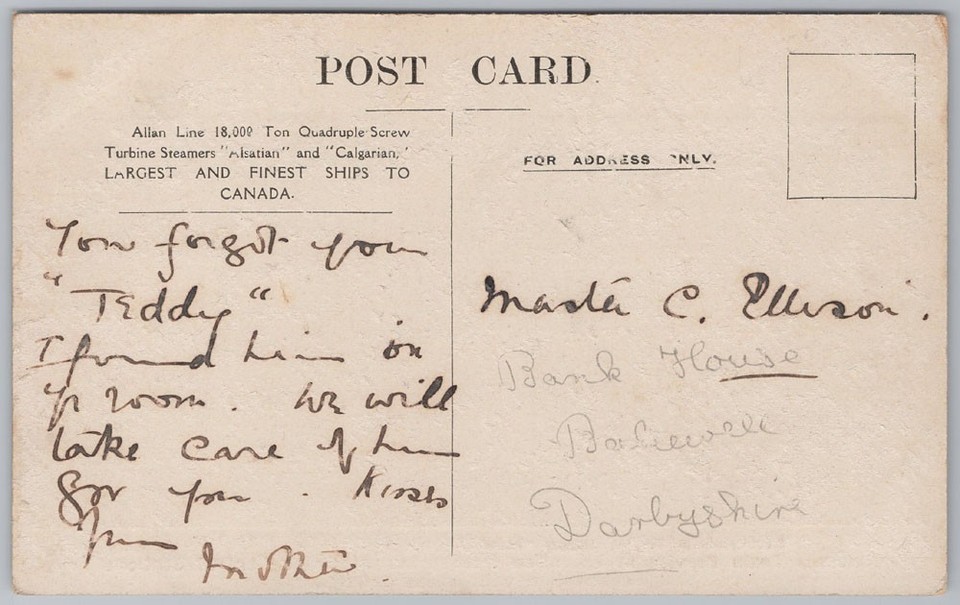 POST CARD
Allan Line 18,000 Ton Quadruple Screw
Turbine Steamers "Alsatian" and "Calgarian,"
LARGEST AND FINEST SHIPS TO
CANADA.
FOR ADDRESS ONLY.
You forgot your
"Teddy"
I found him in
yr room. We will
take care of him
for you. Kisses
from
Mother.
Master C. Ellison.
Bank House
Bakewell
Darbyshire